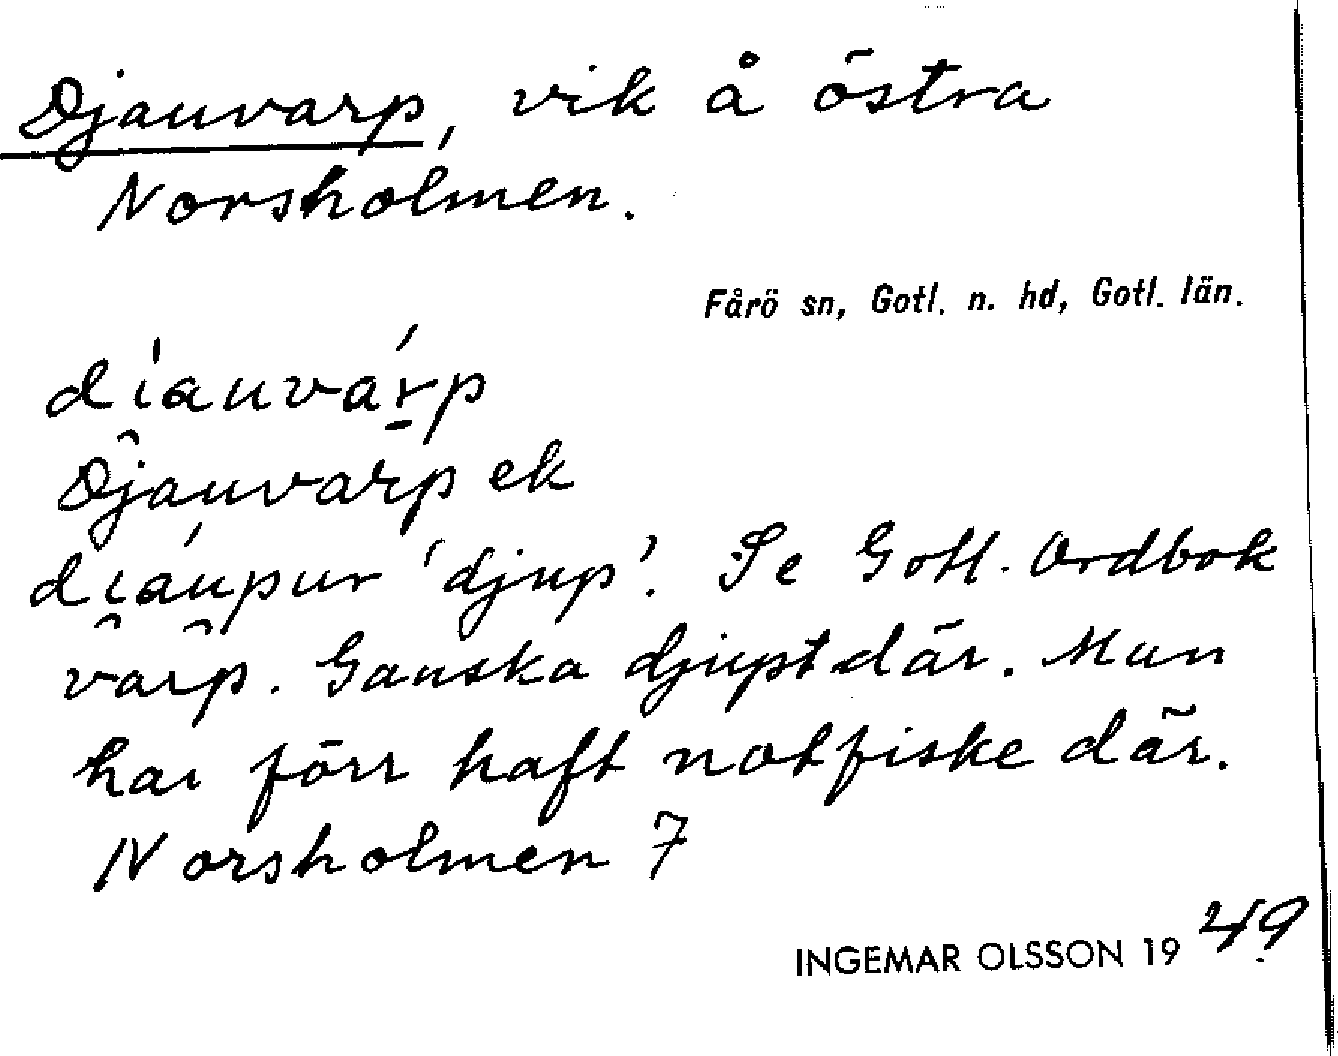 Djauvarp, vik å östra
Norsholmen.
Fårö sn, Gotl. n. hd, Gotl. län.
di̯auvarp
Djauvarp ek
di̯aupur 'djup'. Se Gotl. Ordbok
varp. Ganska djupt där. Man
har förr haft notfiske där.
Norsholmen 7
INGEMAR OLSSON 1949